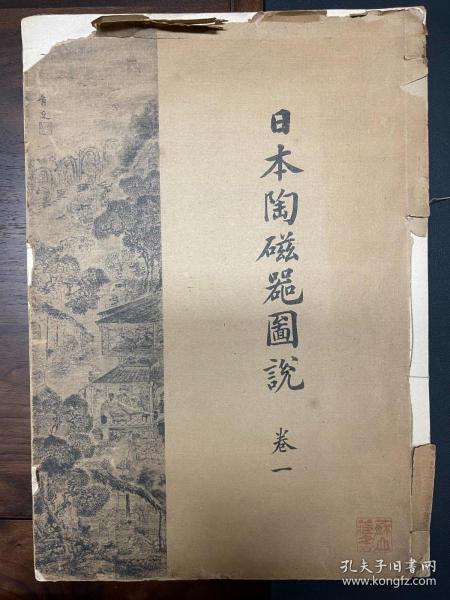 日本陶磁器圖說
卷一
孔夫子旧书网
www.kongfz.com